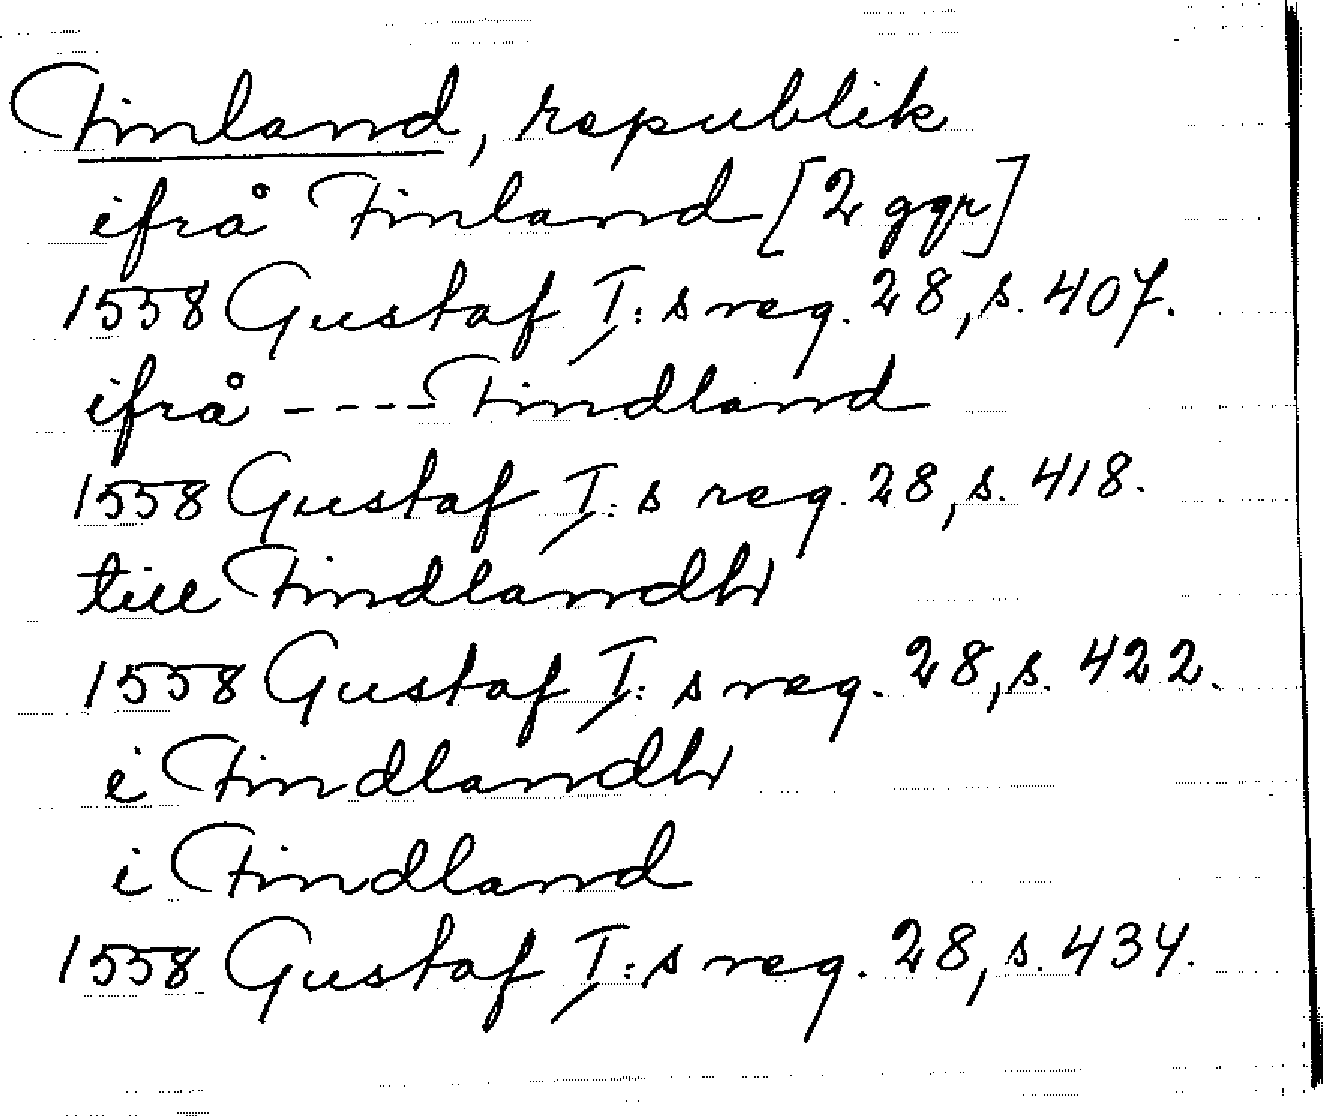 Finland, republik
ifrå Finland [2 ggr]
1558 Gustaf I:s reg. 28, s. 407.
ifrå ---- Findland
1558 Gustaf I:s reg. 28, s. 418.
till Findlandh
1558 Gustaf I:s reg. 28, s. 422.
i Findlandh
i Findland
1558 Gustaf I:s reg. 28, s. 434.